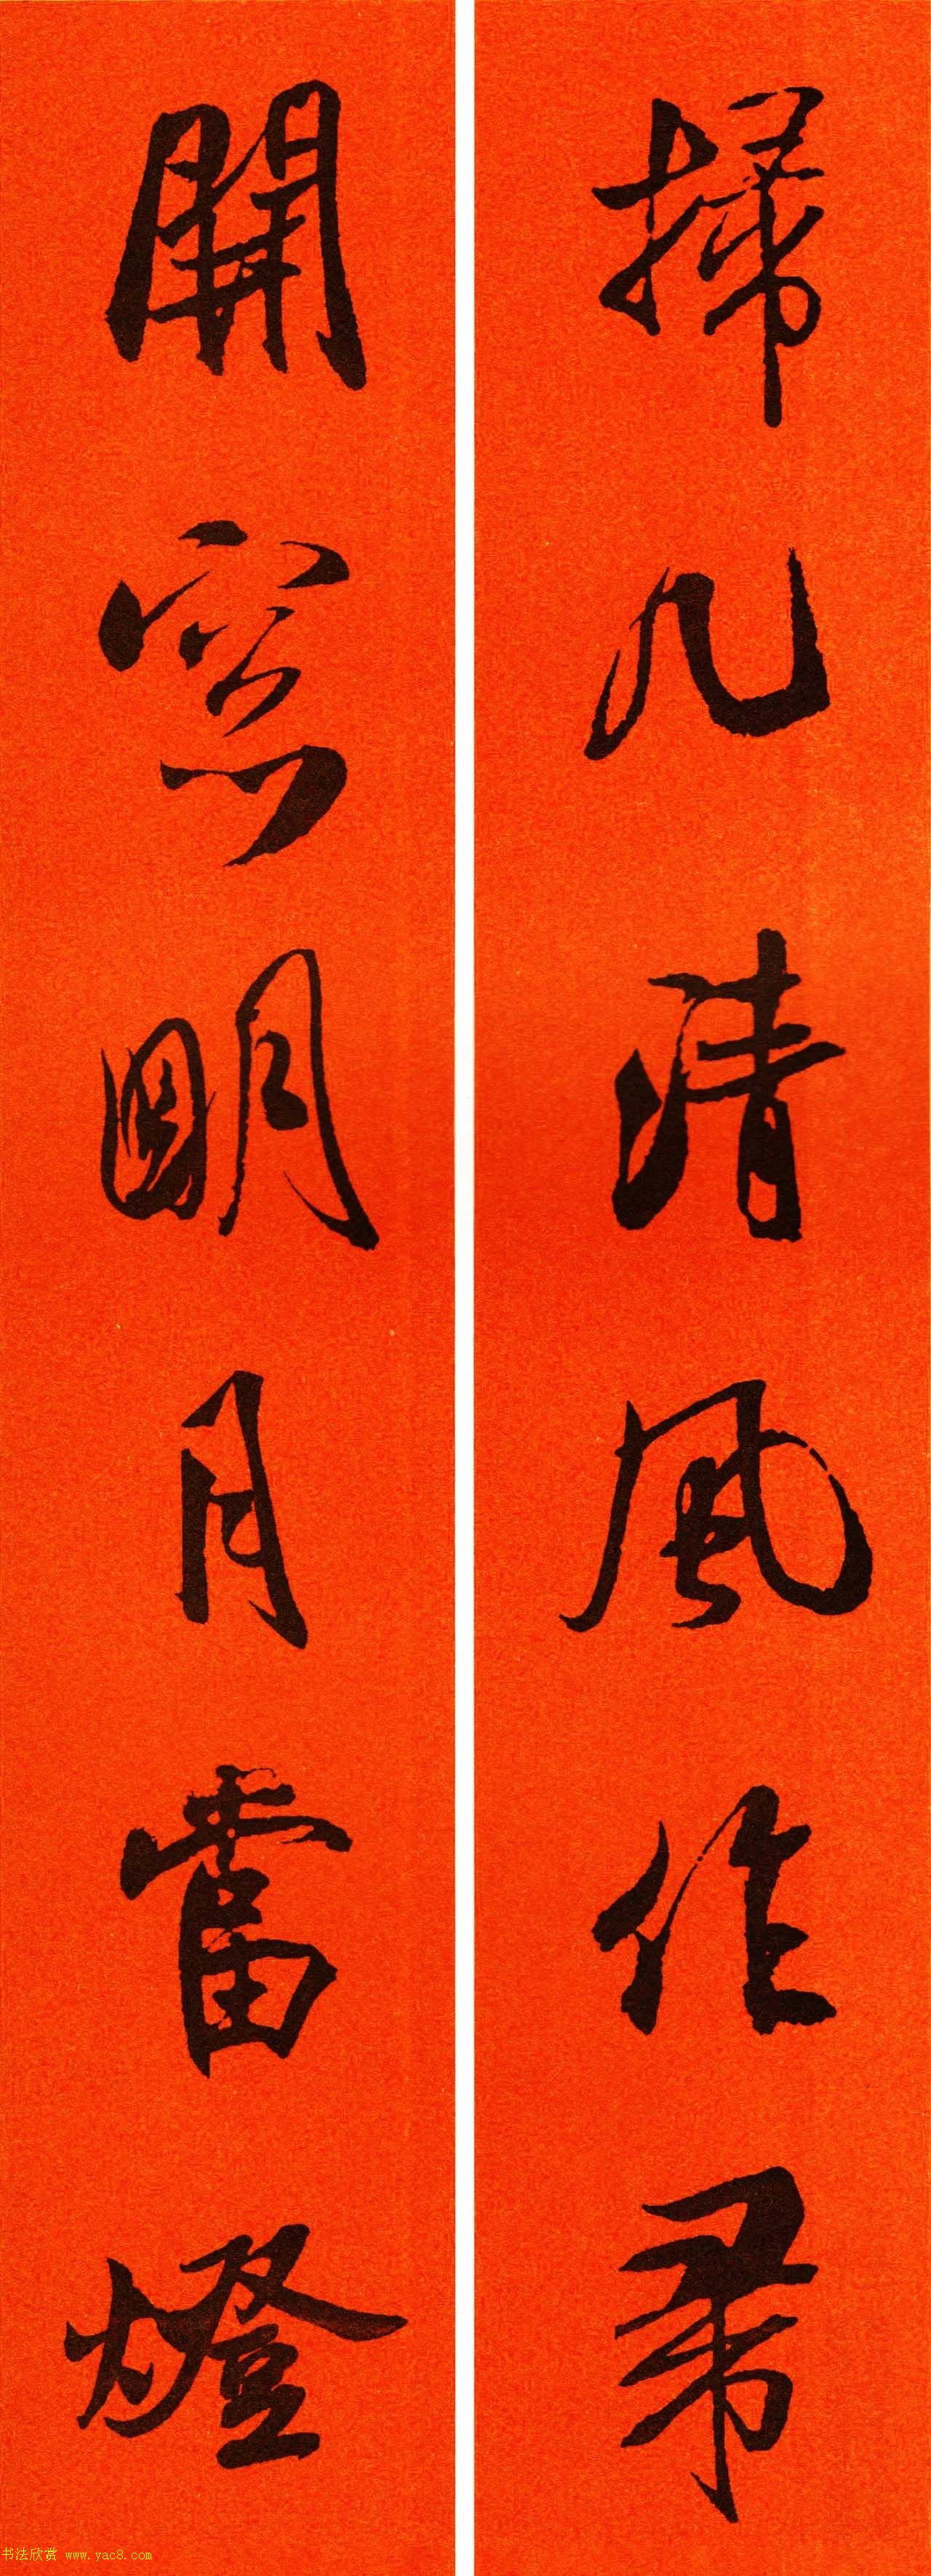 掃几清風作帚
開窓明月當燈
书法欣赏 www.yac8.com